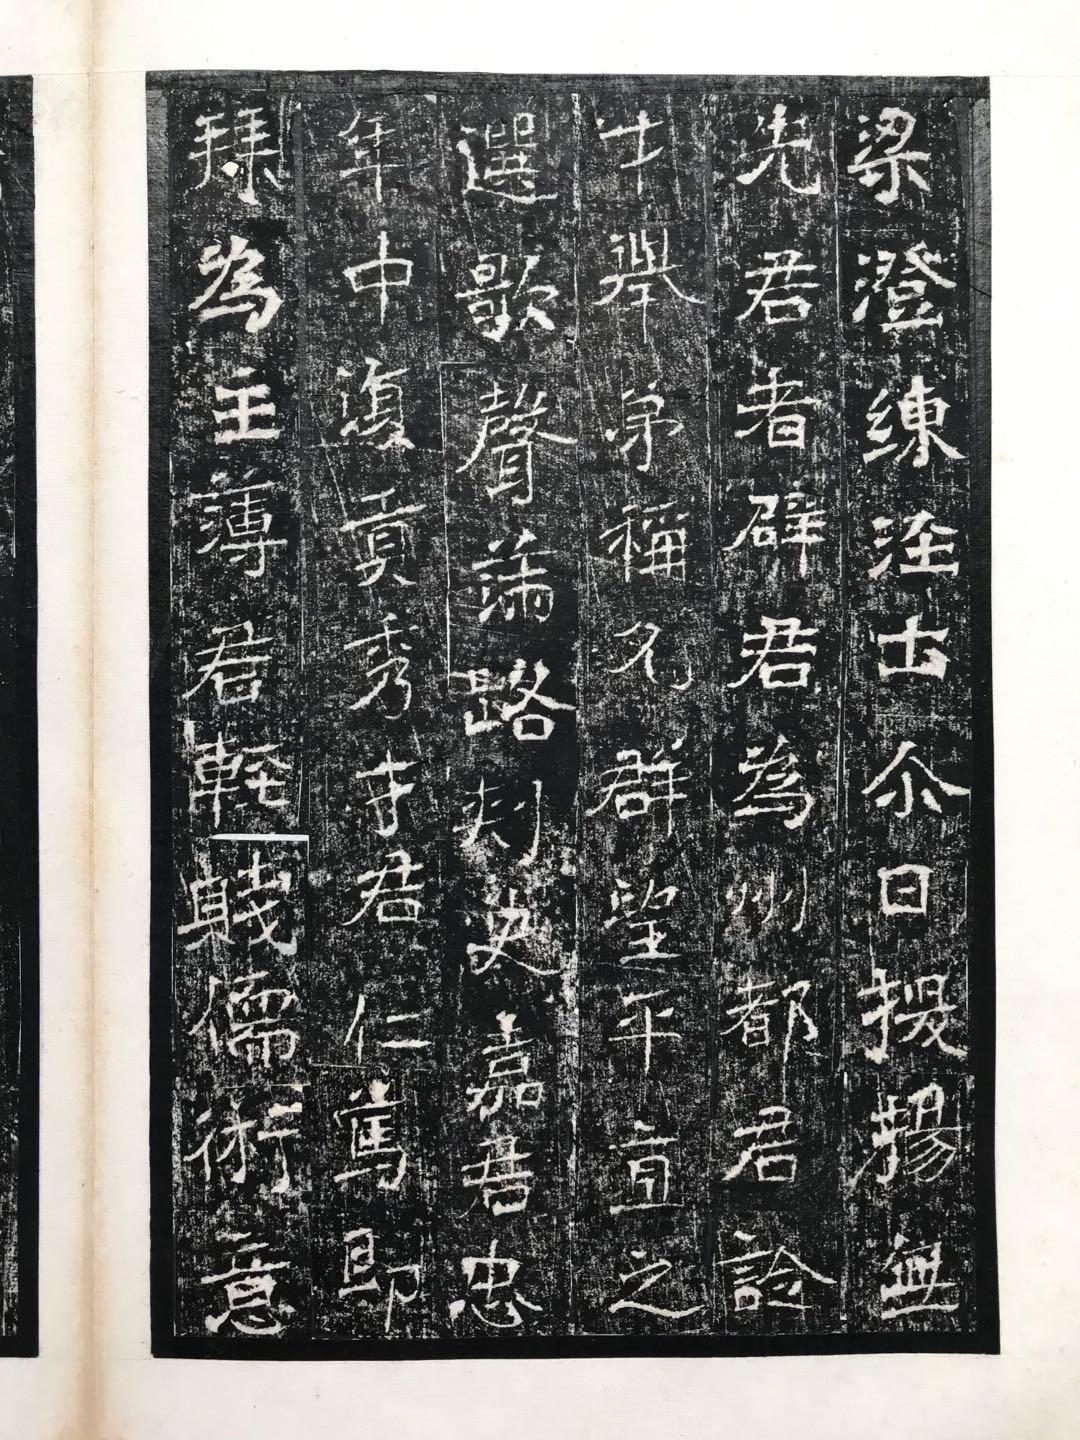 梁澄練涇土尒日掇揚無
先君者辟君為州都君詮
才舉弟稱允群望平直之
選歌聲滿路刾史嘉君忠
年中復貢秀才君仁篤即
拜為主薄君輕賤儒術意